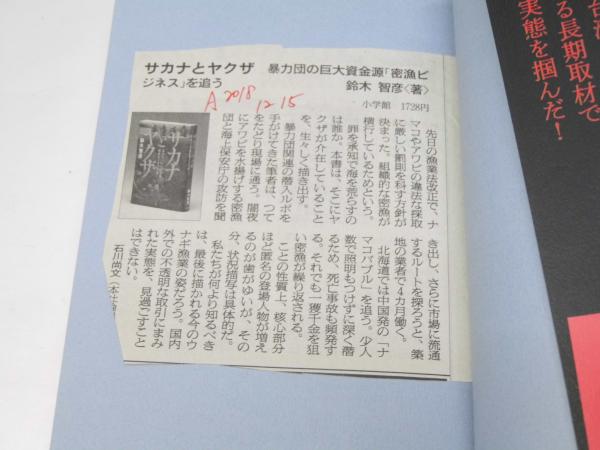 サカナとヤクザ 暴力団の巨大資金源「密漁ビ
ジネス」を追う 鈴木 智彦〈著〉
A 2018 12 15
小学館 1728円
サカナと
ヤクザ
先日の漁業法改正で、ナ
マコやアワビの違法な採取
に厳しい罰則を科す方針が
決まった。組織的な密漁が
横行しているためという。
罪を承知で海を荒らすの
は誰か。本書は、そこにヤ
クザが介在していること
を、生々しく描き出す。
暴力団関連の潜入ルポを
手がけてきた筆者は、つて
をたどり現場に通う。闇夜
にアワビを水揚げする密漁
団と海上保安庁の攻防を聞
き出し、さらに市場に流通
するルートを探ろうと、築
地の業者で4カ月働く。
北海道では中国発の「ナ
マコバブル」を追う。少人
数で照明もつけずに深く潜
るため、死亡事故も頻発す
る。それでも一獲千金を狙
い密漁が繰り返される。
ことの性質上、核心部分
ほど匿名の登場人物が増え
るのが歯がゆいが、その
分、状況描写は具体的だ。
私たちが何より知るべき
は、最後に描かれる今のウ
ナギ漁業の姿だろう。国内
外での不透明な取引にまみ
れた実態を、見過ごすこと
はできない。
石川尚文
る長期取材で
実態を掴んだ！